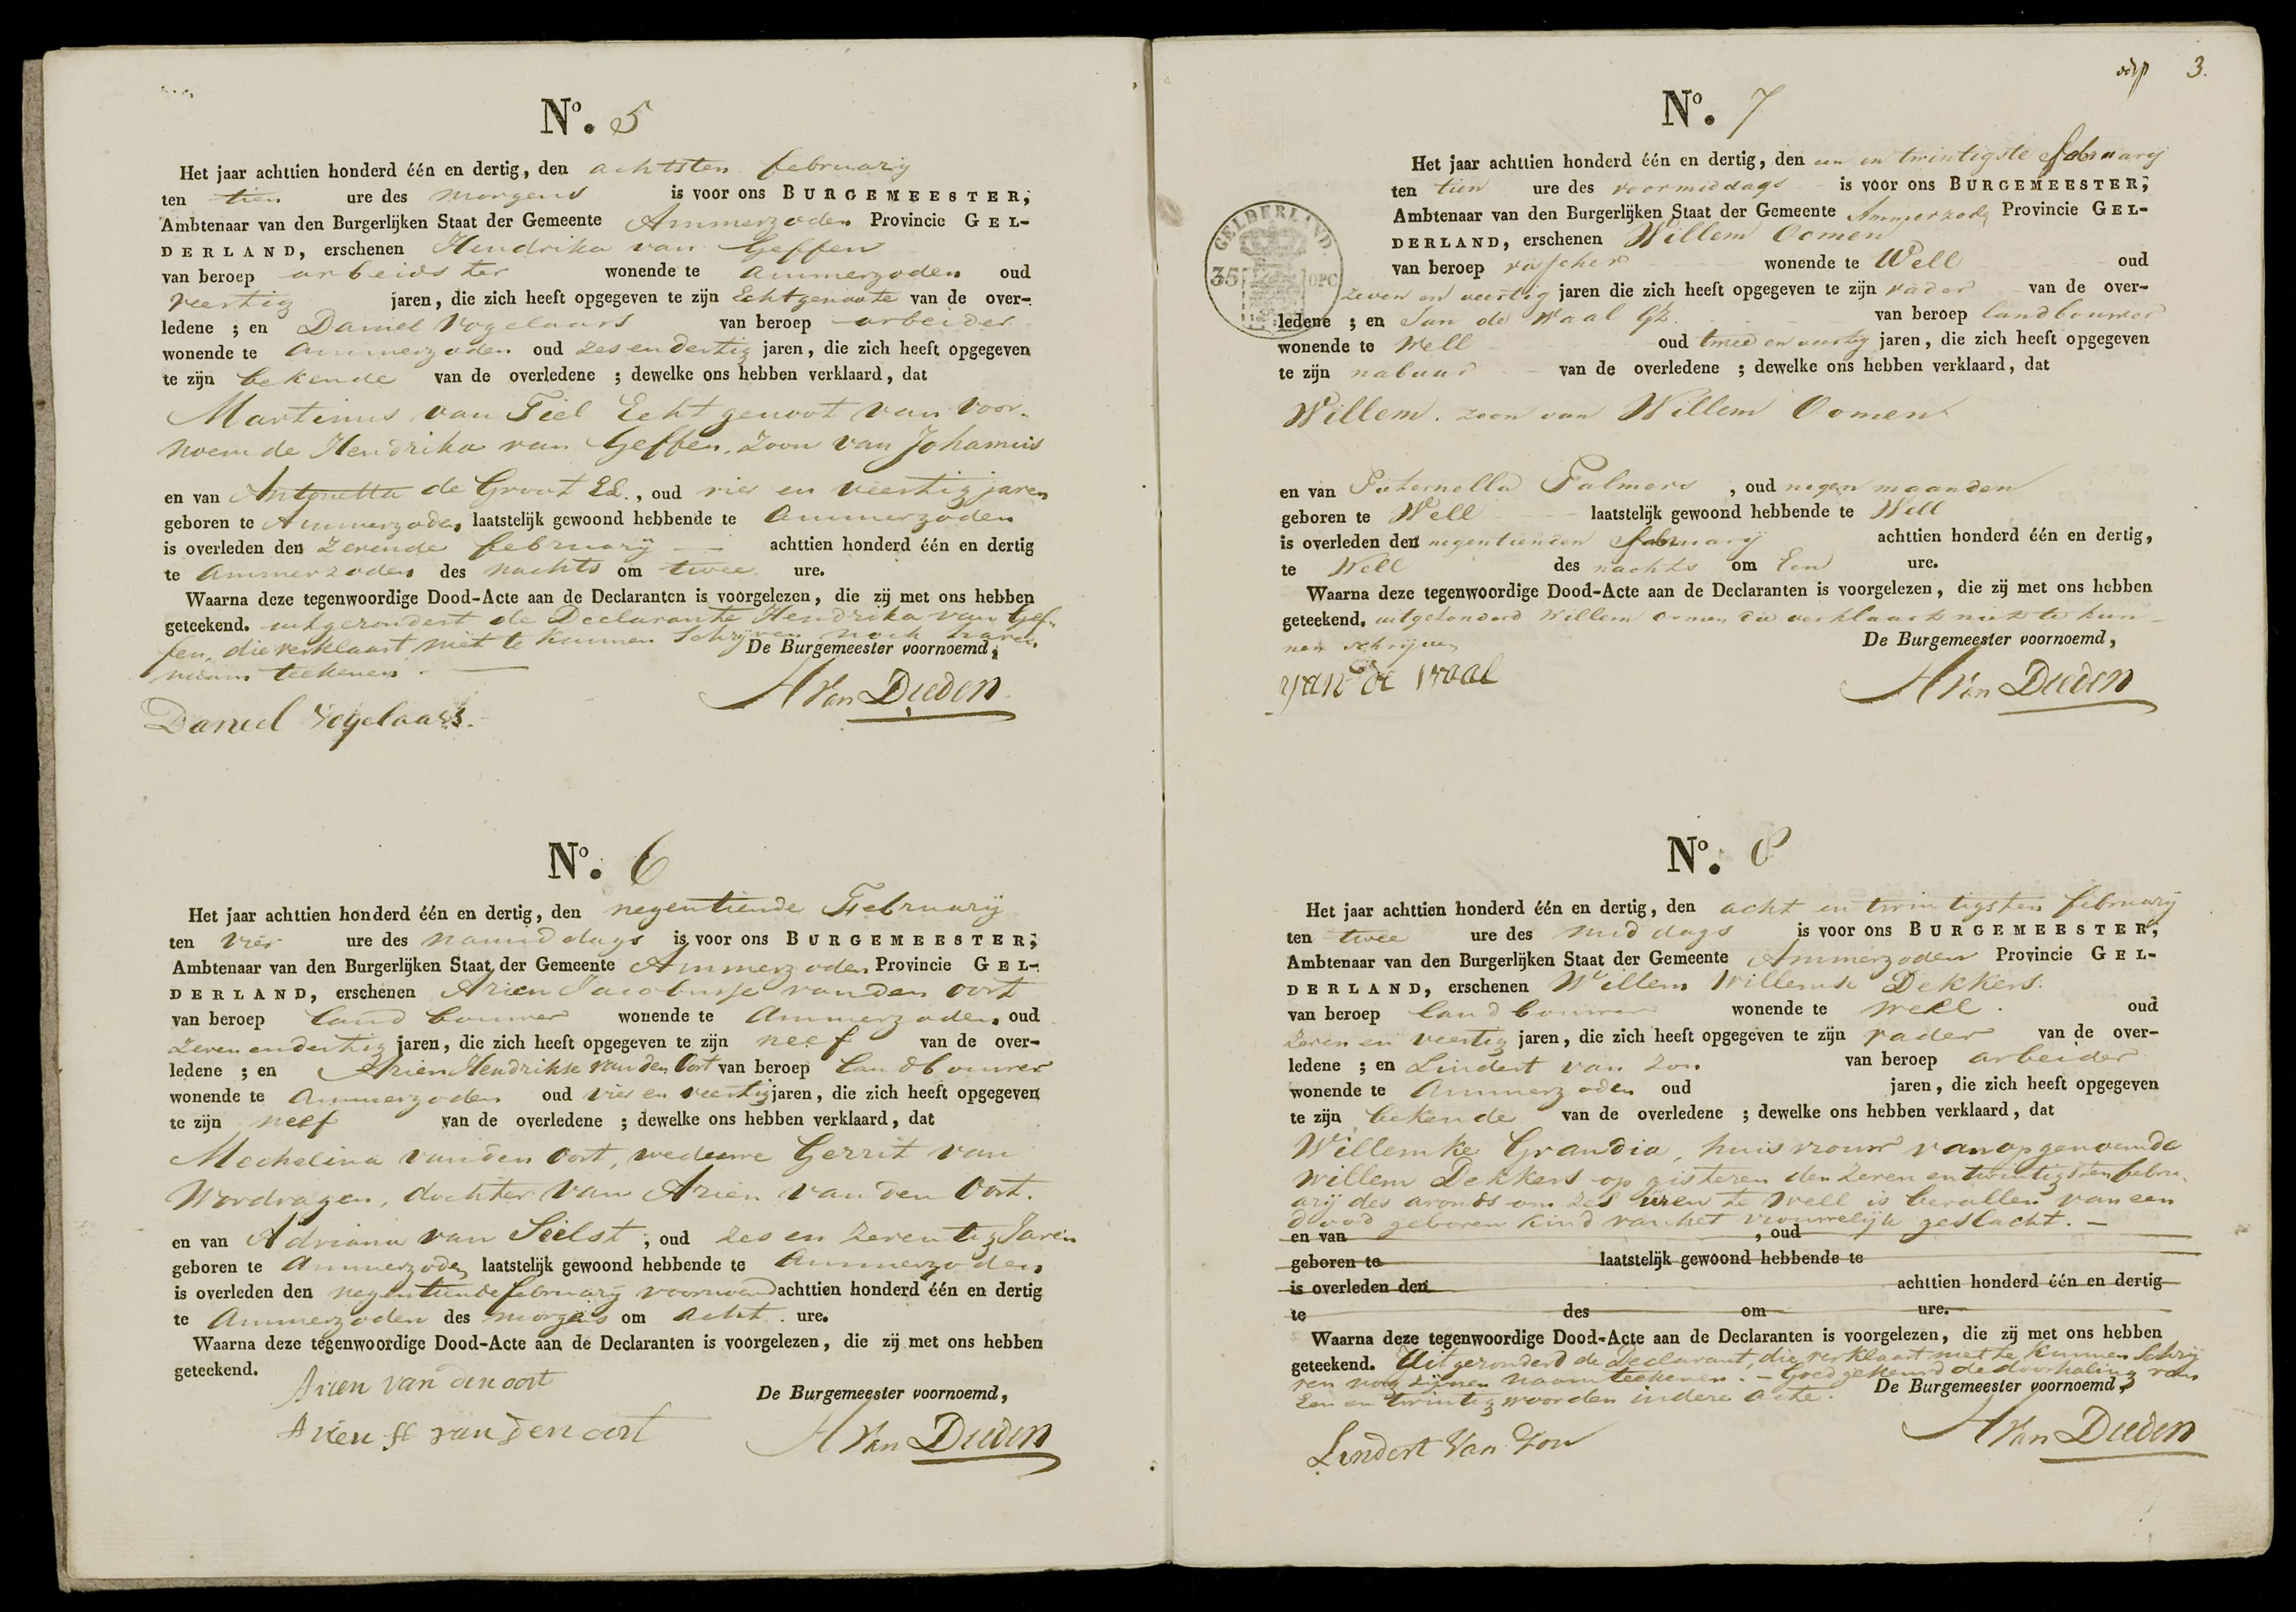 No. 5
Het jaar achttien honderd één en dertig, den achtsten february
ten tien ure des morgens is voor ons BURGEMEESTER,
Ambtenaar van den Burgerlijken Staat der Gemeente Ammerzoden Provincie GEL-
DERLAND, erschenen Hendrika van Geffen
van beroep arbeidster wonende te Ammerzoden oud
veertig jaren, die zich heeft opgegeven te zijn Echtgenoote van de over-
ledene ; en Daniel Vogelaars van beroep arbeider
wonende te Ammerzoden oud zes en dertig jaren, die zich heeft opgegeven
te zijn bekende van de overledene ; dewelke ons hebben verklaard, dat
Martinus van Tiel Echtgenoot van voor-
noemde Hendrika van Geffen, zoon van Johannis
en van Antonetta de Groot , oud vier en veertig jaren
geboren te Ammerzoden laatstelijk gewoond hebbende te Ammerzoden
is overleden den zevende february achttien honderd één en dertig
te Ammerzoden des nachts om twee ure.
Waarna deze tegenwoordige Dood-Acte aan de Declaranten is voorgelezen, die zij met ons hebben
geteekend. uitgezondert de Declarante Hendrika van Gef-
fen, die verklaart niet te kunnen schrijven noch haren
De Burgemeester voornoemd,
naam teekenen.
A Van Dieden
Daniel Vogelaars.
No. 6
Het jaar achttien honderd één en dertig, den negentiende February
ten vier ure des namiddags is voor ons BURGEMEESTER,
Ambtenaar van den Burgerlijken Staat der Gemeente Ammerzoden Provincie GEL-
DERLAND, erschenen Arien Jacobusse van den Oort
van beroep landbouwer wonende te Ammerzoden, oud
zeven en dertig jaren, die zich heeft opgegeven te zijn neef van de over-
ledene ; en Arien Hendrikse van den Oort van beroep landbouwer
wonende te Ammerzoden oud vier en veertig jaren, die zich heeft opgegeven
te zijn neef van de overledene ; dewelke ons hebben verklaard, dat
Mechelina van den Oort, weduwe Gerrit van
Wordragen, dochter van Arien van den Oort.
en van Adriana van Seelst , oud zes en zeventig Jaren
geboren te Ammerzoden laatstelijk gewoond hebbende te Ammerzoden
is overleden den negentiende february voornoemd achttien honderd één en dertig
te Ammerzoden des morgens om acht ure.
Waarna deze tegenwoordige Dood-Acte aan de Declaranten is voorgelezen, die zij met ons hebben
geteekend.
Arien van den oort
De Burgemeester voornoemd,
Arien van den oort
A Van Dieden
3.
No. 7
Het jaar achttien honderd één en dertig, den een en twintigste february
ten tien ure des voormiddags is voor ons BURGEMEESTER,
Ambtenaar van den Burgerlijken Staat der Gemeente Ammerzode Provincie GEL-
DERLAND, erschenen Willem Oomen
van beroep visscher wonende te Well oud
zeven en veertig jaren die zich heeft opgegeven te zijn vader van de over-
ledene ; en Jan de Waal Gz. van beroep landbouwer
wonende te Well oud twee en veertig jaren, die zich heeft opgegeven
te zijn nabuur van de overledene ; dewelke ons hebben verklaard, dat
Willem, zoon van Willem Oomen
en van Peternella Palmers , oud negen maanden
geboren te Well laatstelijk gewoond hebbende te Well
is overleden den negentienden february achttien honderd één en dertig,
te Well des nachts om Een ure.
Waarna deze tegenwoordige Dood-Acte aan de Declaranten is voorgelezen, die zij met ons hebben
geteekend, uitgezonderd Willem Oomen die verklaart niet te kun-
nen schrijven
De Burgemeester voornoemd,
Jan de Waal
A Van Dieden
GELDERLAND.
35 OPC
No. 8
Het jaar achttien honderd één en dertig, den acht en twintigsten february
ten twee ure des middags is voor ons BURGEMEESTER,
Ambtenaar van den Burgerlijken Staat der Gemeente Ammerzoden Provincie GEL-
DERLAND, erschenen Willem Willemse Dekkers.
van beroep landbouwer wonende te Well. oud
zeven en veertig jaren, die zich heeft opgegeven te zijn vader van de over-
ledene ; en Lindert van Zon van beroep arbeider
wonende te Ammerzoden oud jaren, die zich heeft opgegeven
te zijn bekende van de overledene ; dewelke ons hebben verklaard, dat
Willemke Grandia, huisvrouw van opgenoemde
Willem Dekkers op gisteren den zeven en twintigsten febru-
arij des avonds om zes uren te Well is bevallen van een
dood geboren kind van het vrouwelijk geslacht. -
en van , oud
geboren te laatstelijk gewoond hebbende te
is overleden den achttien honderd één en dertig
te des om ure.
Waarna deze tegenwoordige Dood-Acte aan de Declaranten is voorgelezen, die zij met ons hebben
geteekend. Uitgezonderd de Declarant, die verklaart niet te kunnen schrij
ven nog zijnen naam teekenen. - Goedgekeurd de doorhaling van
Een en twintig woorden in deze acte.
De Burgemeester voornoemd,
Lindert Van Zon
A Van Dieden